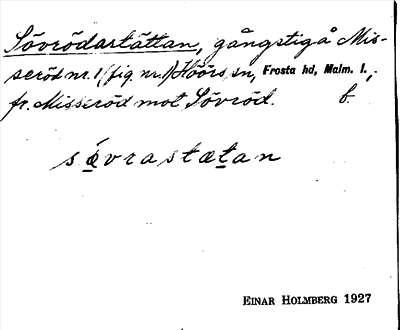 Sövrödartättan, gångstig å Mis-
seröd nr. 1 (fig nr. 1) Höörs sn, Frosta hd, Malm. l.,
fr. Misseröd mot Sövröd. b.
EINAR HOLMBERG 1927